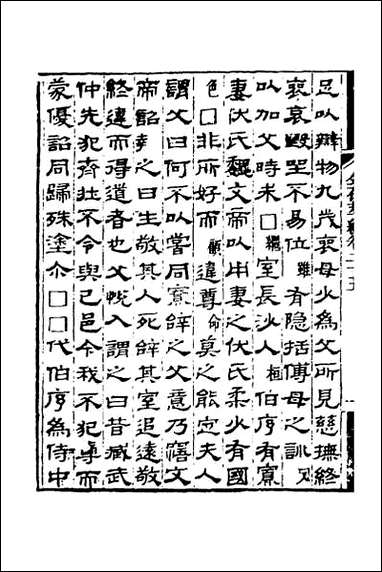 足以辯物九歲喪母少為父所見慈撫終
喪哀毀坐不易位雖有隱括傅母之訓又
以加父時未□繼室長沙人桓伯序有寡
妻伏氏魏文帝以妻之伏氏柔少有國
色□非所好而顧違尊命莫之能定夫人
謂父曰何不以嘗同寮辭之父意乃寤文
帝詔報之曰生敬其人死辭其室追遠敬
終違而得道者也父悅入謂之曰昔臧武
仲先犯齊壯不令與己邑今我不犯而
蒙優詔同歸殊塗尒□□代伯序為侍中
金石萃編卷二十五
一